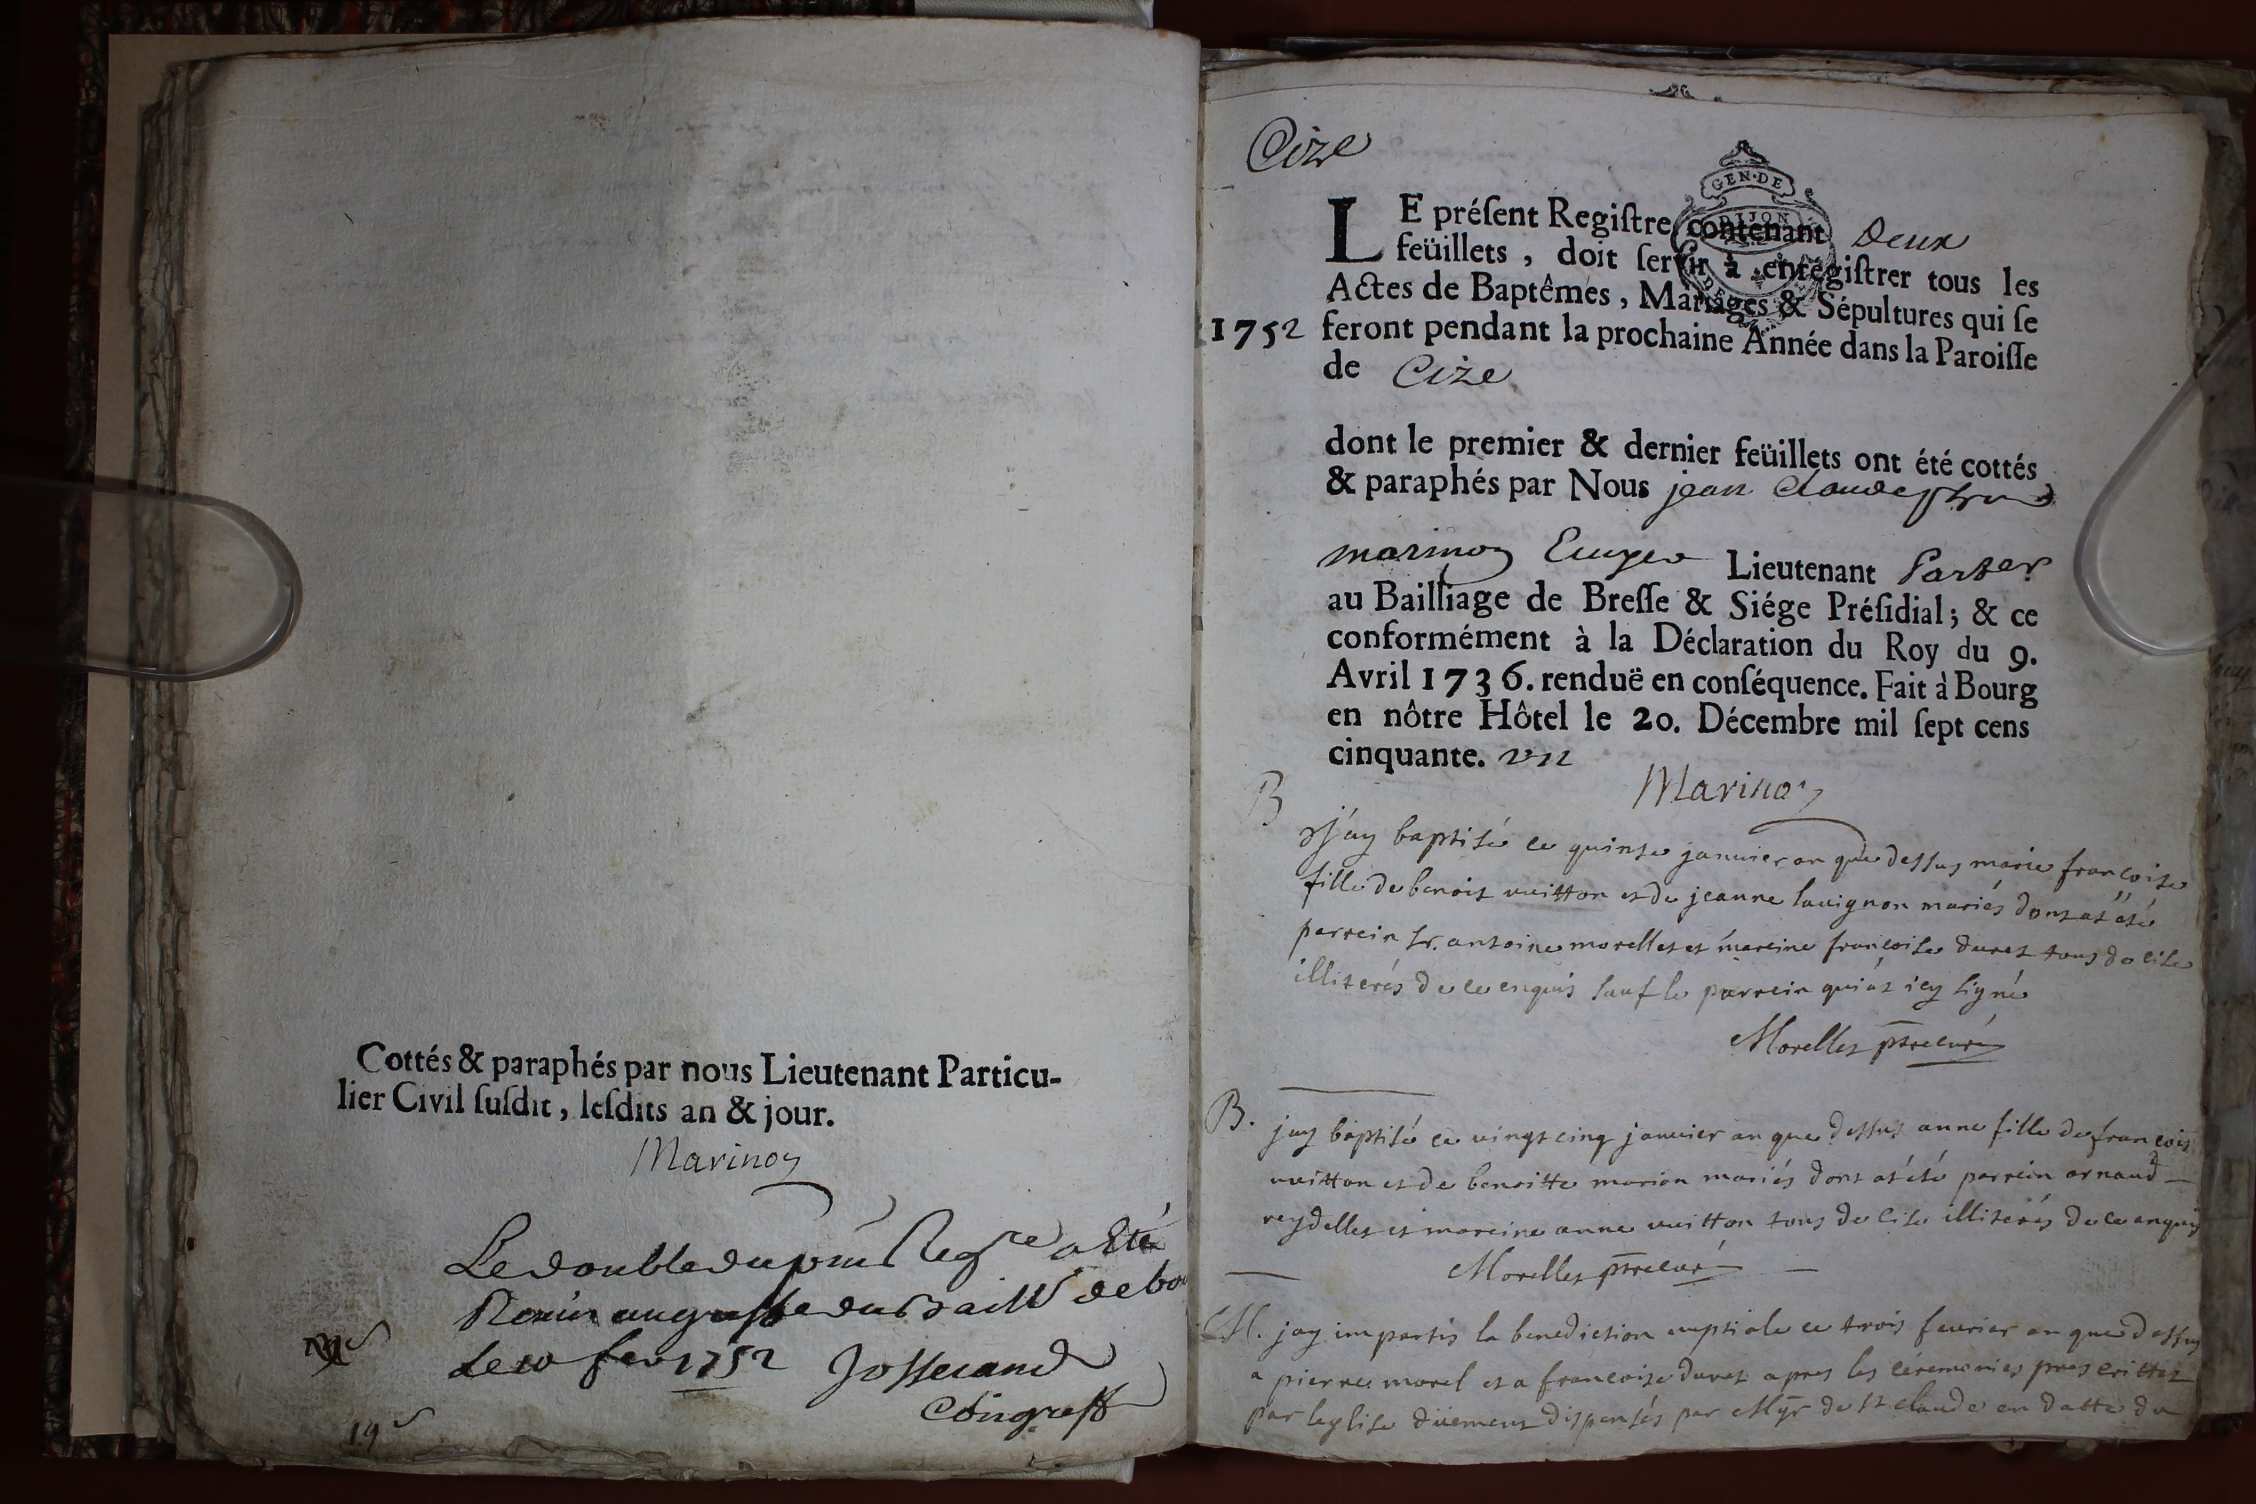 Cottés & paraphés par nous Lieutenant Particu-
lier Civil ſuſdit, leſdits an & jour.
Marinon
Le double du Regre a Eté
au greffe du Baill de bou
Le 10 fev 1752 Josserand
Congreff
19
Cize
GEN·DE
DIJON
LE préſent Regiſtre contenant Deux
feüillets, doit ſervir à enregiſtrer tous les
Actes de Baptêmes, Mariages & Sépultures qui ſe
1752 feront pendant la prochaine Année dans la Paroiſſe
de Cize
dont le premier & dernier feüillets ont été cottés
& paraphés par Nous jean Claude
marinon Lieutenant Parter
au Bailliage de Breſſe & Siége Préſidial; & ce
conformément à la Déclaration du Roy du 9.
Avril 1736. renduë en conſéquence. Fait à Bourg
en nôtre Hôtel le 20. Décembre mil ſept cens
cinquante. un
Marinon
B
j'ay baptisé ce quinse janvier an que dessus marie francoise
fille de benoit vuitton et de jeanne savignon mariés dont at été
parrein sr. antoine morellet et mareine francoise duret tous de cise
illiterés de ce enquis sauf le parrein qui at icy signé
Morellet ptre curé
B. jay baptisé ce vingt cinq janvier an que dessus anne fille de francois
vuitton et de benoitte marion mariés dont at été parrein arnaud
reydellet et mareine anne vuitton tous de cise illiterés de ce enquis
Morellet ptre curé
M. jay imparti la benediction nuptiale ce trois fevrier an que dessus
a pierre morel et a francoise duret apres les cérémonies prescrittes
par leglise düement dispensés par Mgr de st claude en datte du